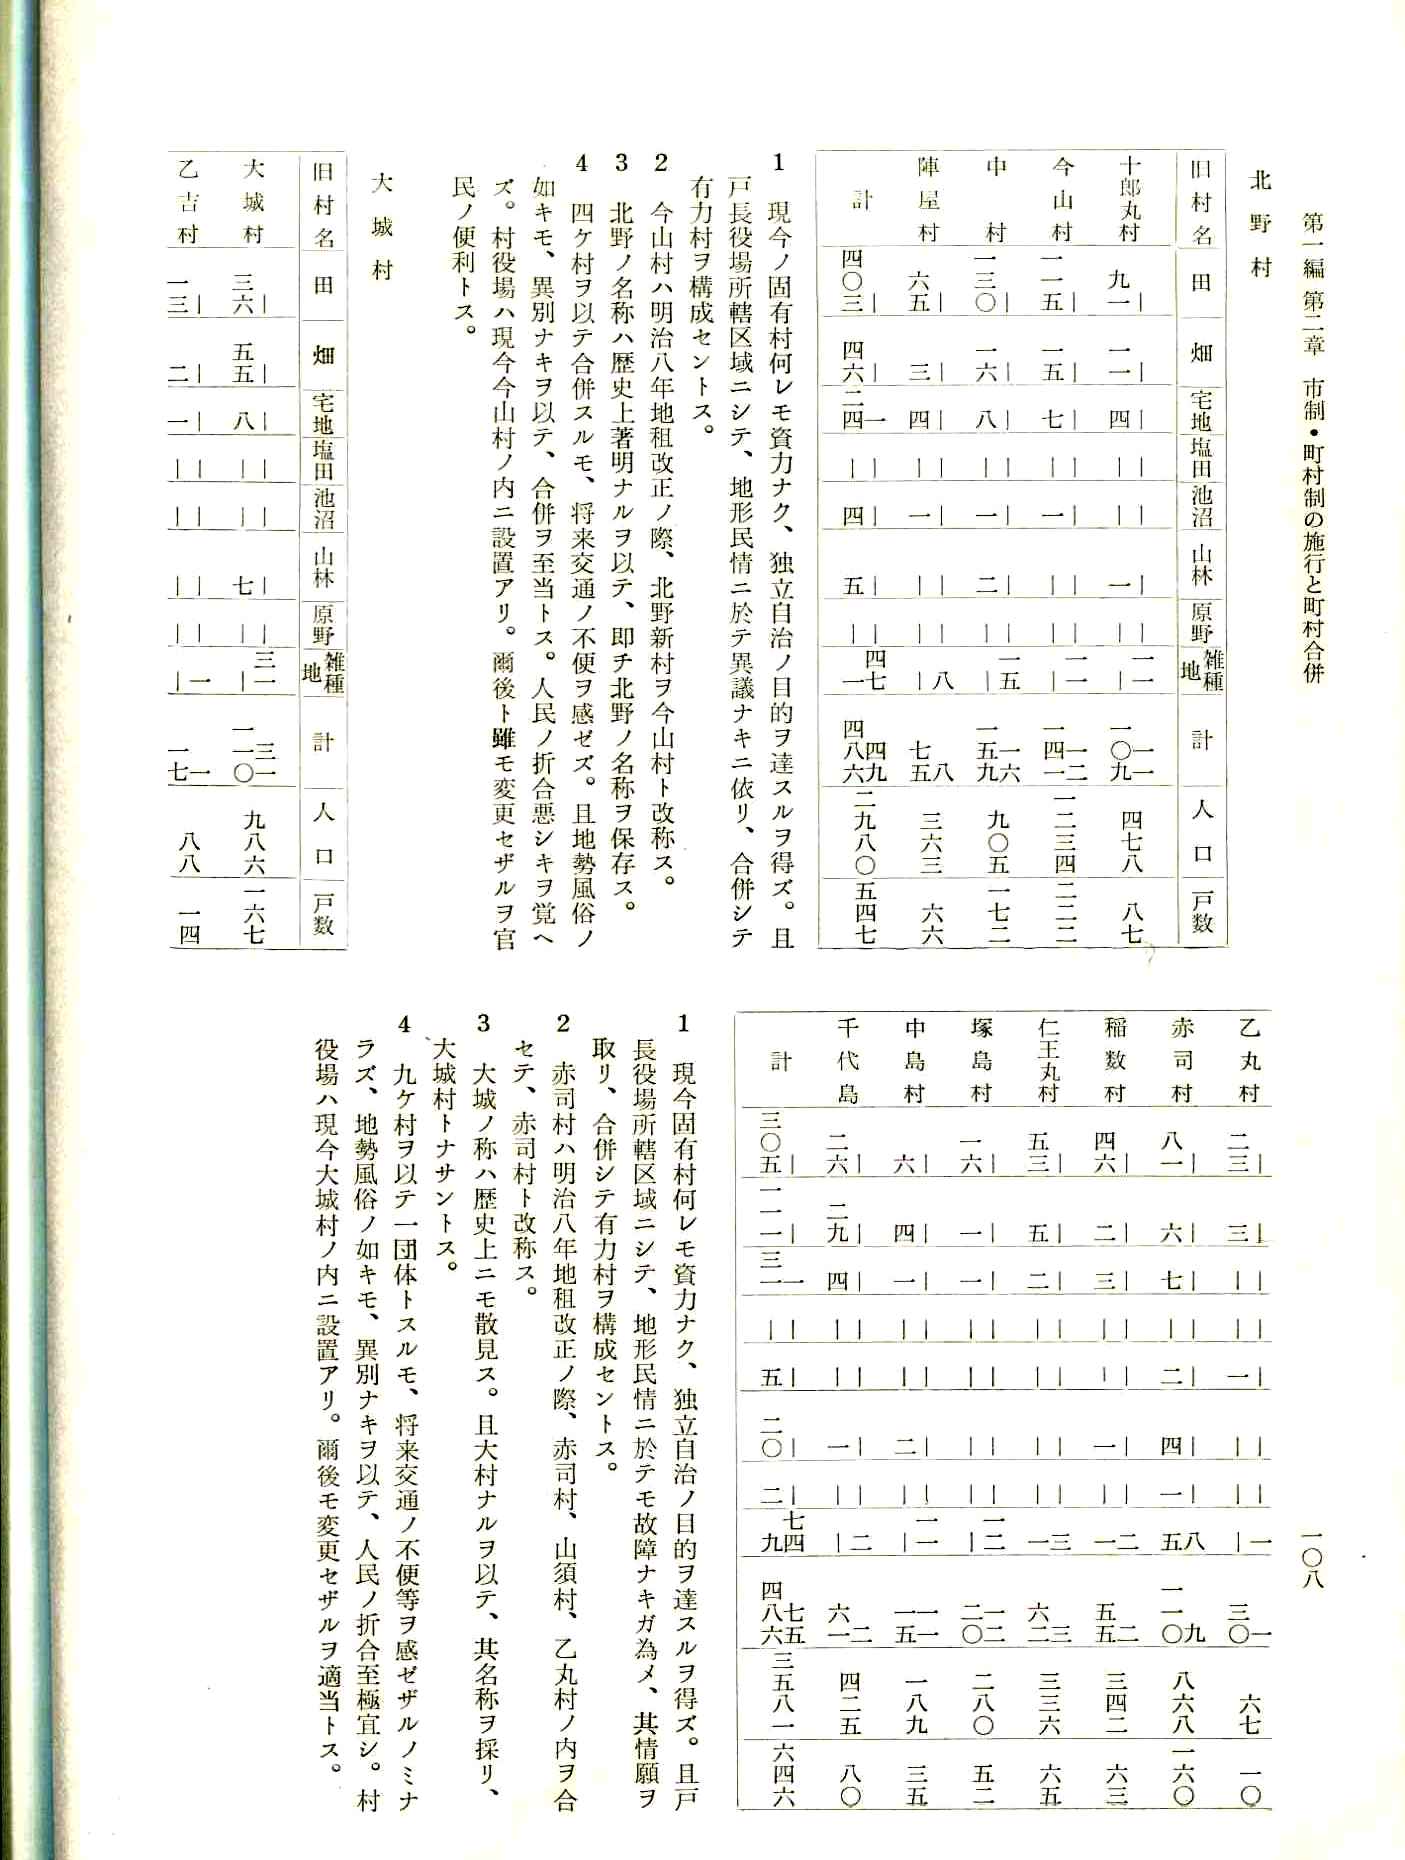 第一編 第二章 市制・町村制の施行と町村合併
一〇八
北野村
旧村名 田 畑 宅地 塩田 池沼 山林 原野 雑種地 計 人口 戸数
十郎丸村 ｜ 九一 ｜ 一一 ｜ 四 ｜ ｜ ｜ ｜ ｜ 一 ｜ ｜ 一一 ｜ 一一 一〇九 四七八 八七
今山村 ｜ 一一五 ｜ 一五 ｜ 七 ｜ ｜ ｜ 一 ｜ ｜ ｜ ｜ 一一 一 一二 一四一 一二三四 二二二
中村 ｜ 一三〇 ｜ 一六 ｜ 八 ｜ ｜ ｜ 一 ｜ 二 ｜ ｜ 一五 ｜ 一六 一五九 九〇五 一七二
陣屋村 ｜ 六五 ｜ 三 ｜ 四 ｜ ｜ ｜ 一 ｜ ｜ ｜ ｜ 八 ｜ 八 七五 三六三 六六
計 ｜ 四〇三 ｜ 四六 一 二四 ｜ ｜ ｜ 四 ｜ 五 ｜ ｜ 四七 一 四九 四八六 二九八〇 五四七
1 現今ノ固有村何レモ資力ナク、独立自治ノ目的ヲ達スルヲ得ズ。且
戸長役場所轄区域ニシテ、地形民情ニ於テ異議ナキニ依リ、合併シテ
有力村ヲ構成セントス。
2 今山村ハ明治八年地租改正ノ際、北野新村ヲ今山村ト改称ス。
3 北野ノ名称ハ歴史上著明ナルヲ以テ、即チ北野ノ名称ヲ保存ス。
4 四ケ村ヲ以テ合併スルモ、将来交通ノ不便ヲ感ゼズ。且地勢風俗ノ
如キモ、異別ナキヲ以テ、合併ヲ至当トス。人民ノ折合悪シキヲ覚ヘ
ズ。村役場ハ現今今山村ノ内ニ設置アリ。爾後ト雖モ変更セザルヲ官
民ノ便利トス。
大城村
旧村名 田 畑 宅地 塩田 池沼 山林 原野 雑種地 計 人口 戸数
大城村 ｜ 三六 ｜ 五五 ｜ 八 ｜ ｜ ｜ ｜ ｜ 七 ｜ ｜ 三一 ｜ 三一 一一〇 九八六 一六七
乙吉村 ｜ 一三 ｜ 二 ｜ 一 ｜ ｜ ｜ ｜ ｜ ｜ ｜ ｜ 一 ｜ 一 一七 八八 一四
乙丸村 ｜ 二三 ｜ 三 ｜ ｜ ｜ ｜ ｜ 一 ｜ ｜ ｜ ｜ 一 ｜ 一 三〇 六七 一〇
赤司村 ｜ 八一 ｜ 六 ｜ 七 ｜ ｜ ｜ 二 ｜ 四 ｜ 一 八 五 九 一一〇 八六八 一六〇
稲数村 ｜ 四六 ｜ 二 ｜ 三 ｜ ｜ ｜ ｜ ｜ 一 ｜ ｜ 二 一 二 五五 三四二 六三
仁王丸村 ｜ 五三 ｜ 五 ｜ 二 ｜ ｜ ｜ ｜ ｜ ｜ ｜ ｜ 三 一 三 六二 三三六 六五
塚島村 ｜ 一六 ｜ 一 ｜ 一 ｜ ｜ ｜ ｜ ｜ ｜ ｜ ｜ 一二 ｜ 一二 二〇 二八〇 五二
中島村 ｜ 六 ｜ 四 ｜ 一 ｜ ｜ ｜ ｜ ｜ 二 ｜ ｜ 一一 ｜ 一一 一五 一八九 三五
千代島 ｜ 二六 ｜ 二九 ｜ 四 ｜ ｜ ｜ ｜ ｜ 一 ｜ ｜ 二 ｜ 二 六一 四二五 八〇
計 ｜ 三〇五 ｜ 一一一 一 三一 ｜ ｜ ｜ 五 ｜ 二〇 ｜ 二 七四 九 七五 四八六 三五八一 六四六
1 現今固有村何レモ資力ナク、独立自治ノ目的ヲ達スルヲ得ズ。且戸
長役場所轄区域ニシテ、地形民情ニ於テモ故障ナキガ為メ、其情願ヲ
取リ、合併シテ有力村ヲ構成セントス。
2 赤司村ハ明治八年地租改正ノ際、赤司村、山須村、乙丸村ノ内ヲ合
セテ、赤司村ト改称ス。
3 大城ノ称ハ歴史上ニモ散見ス。且大村ナルヲ以テ、其名称ヲ採リ、
大城村トナサントス。
4 九ケ村ヲ以テ一団体トスルモ、将来交通ノ不便等ヲ感ゼザルノミナ
ラズ、地勢風俗ノ如キモ、異別ナキヲ以テ、人民ノ折合至極宜シ。村
役場ハ現今大城村ノ内ニ設置アリ。爾後モ変更セザルヲ適当トス。